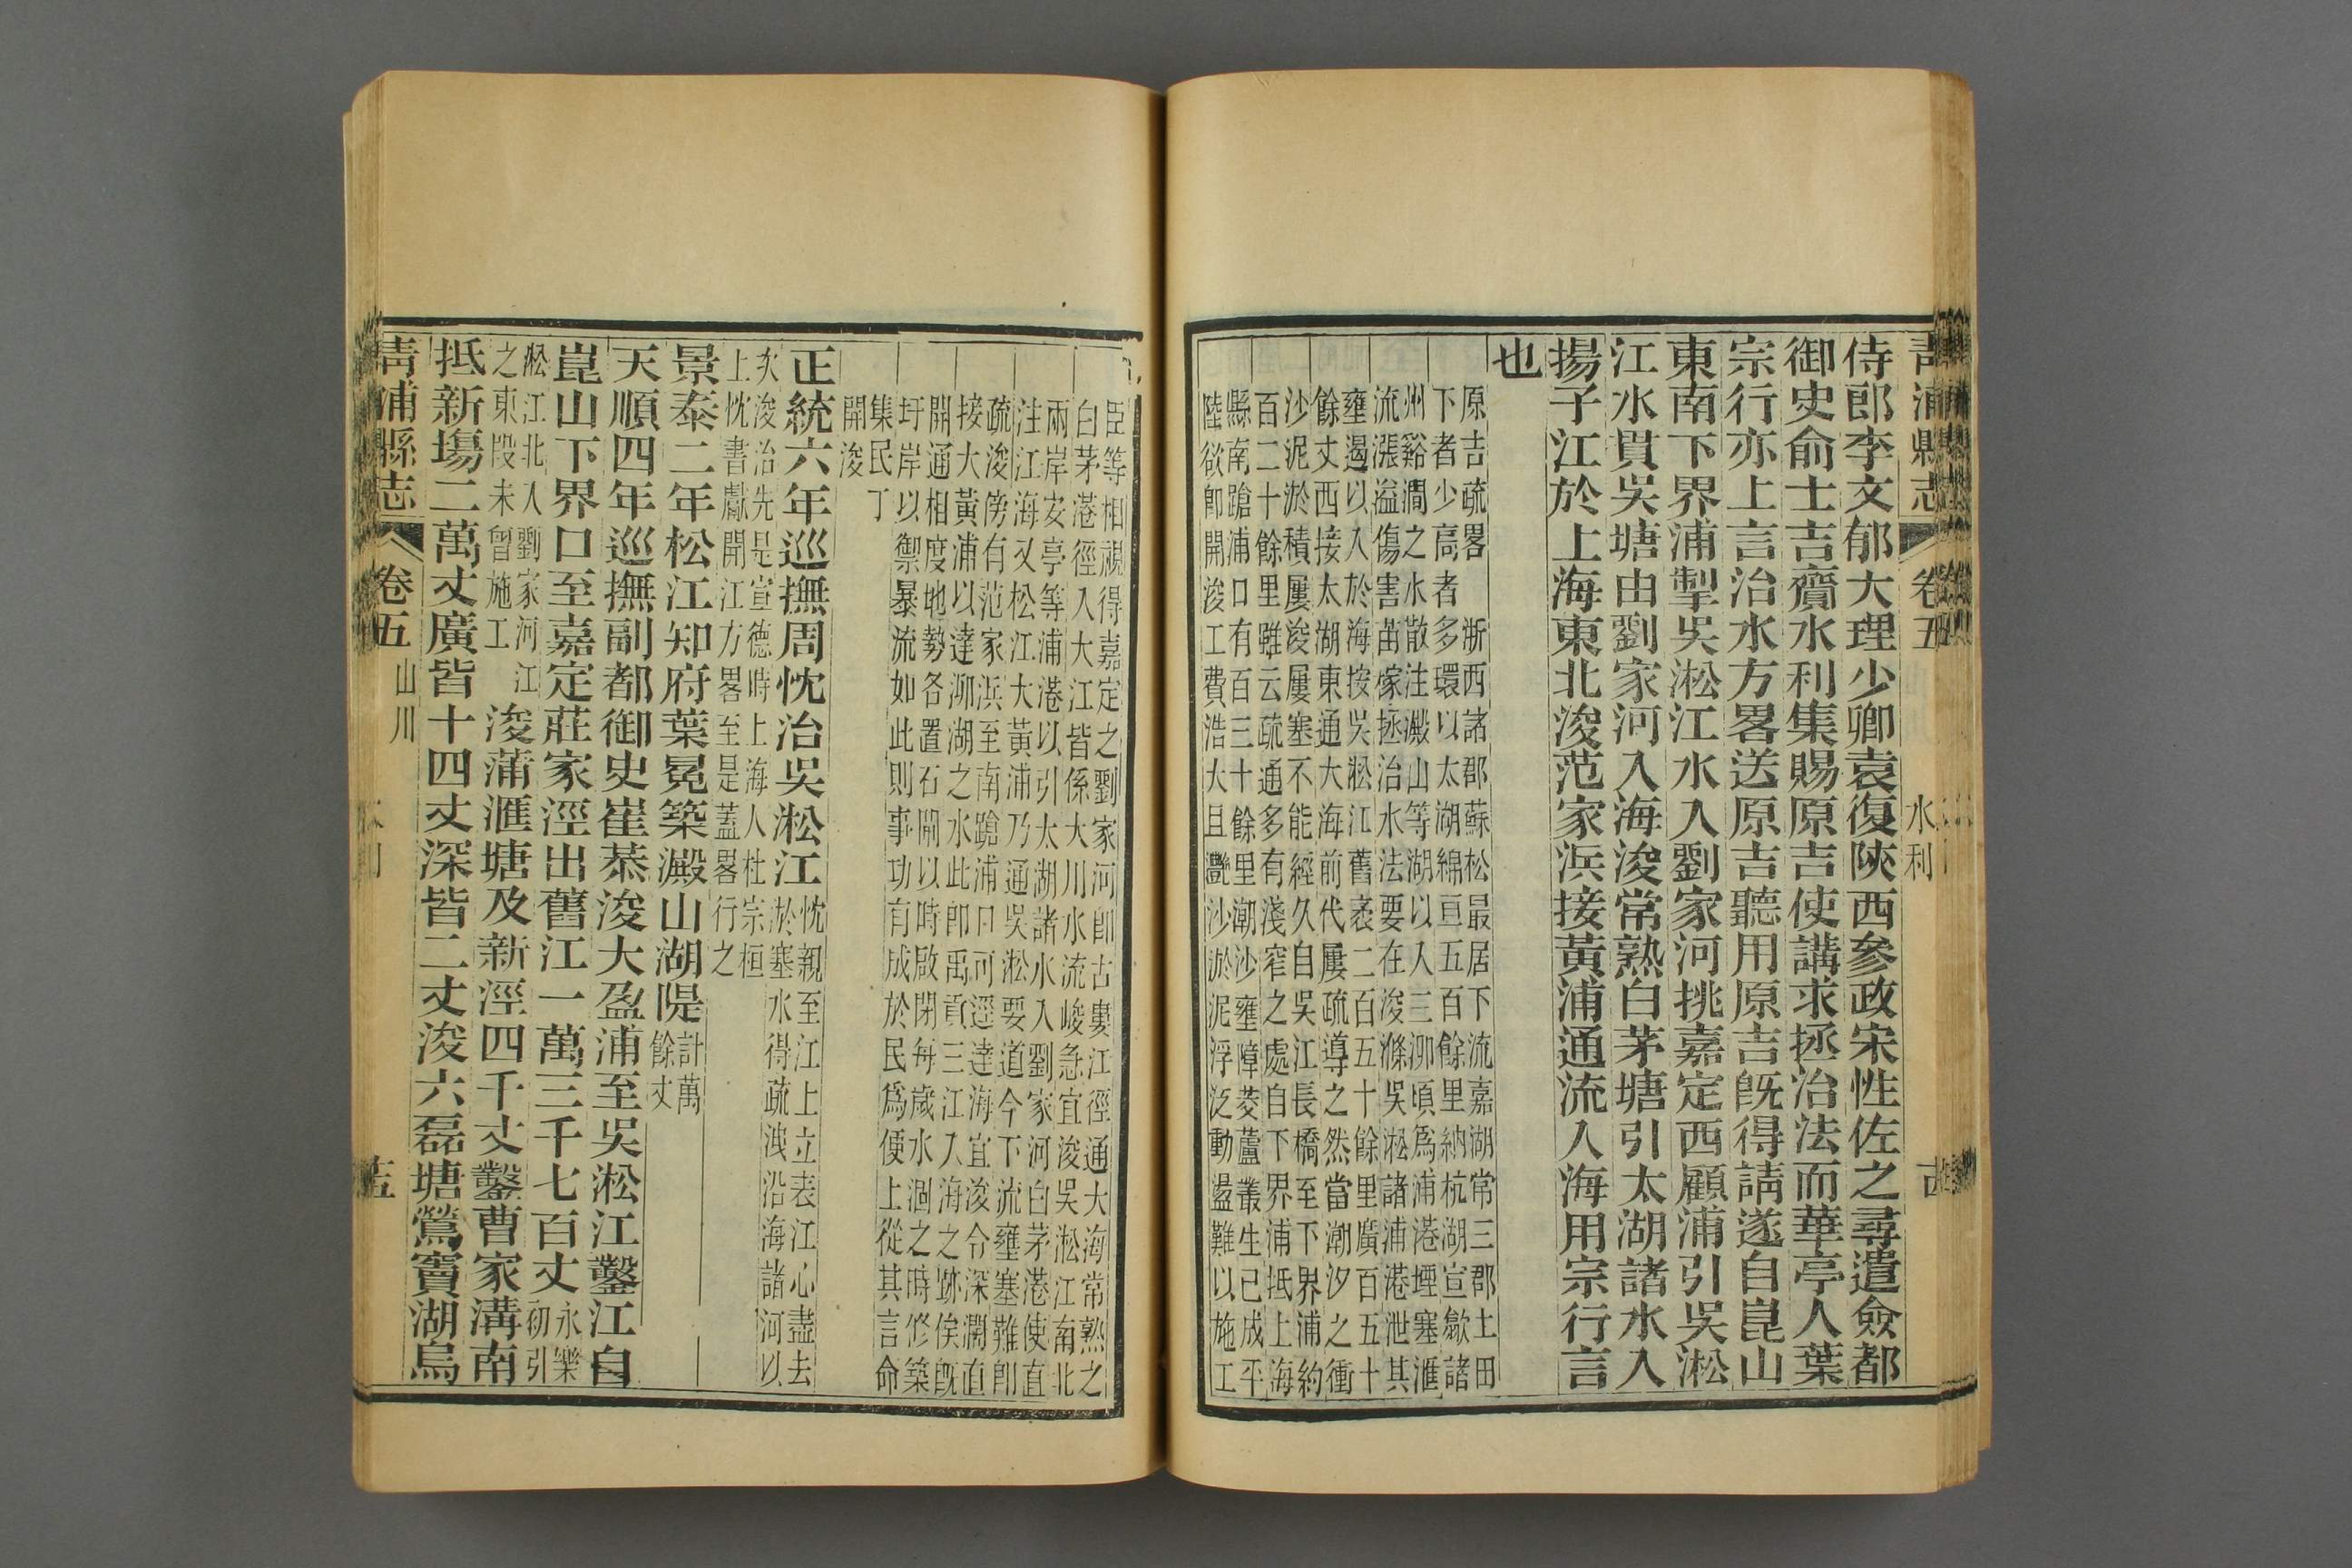 青浦縣志 卷五 水利
侍郎李文郁大理少卿袁復陝西參政宋性佐之尋遣僉都
御史俞士吉齎水利集賜原吉使講求拯治法而華亭人葉
宗行亦上言治水方畧送原吉聽用原吉旣得請遂自崑山
東南下界浦掣吳淞江水入劉家河挑嘉定西顧浦引吳淞
江水貫吳塘由劉家河入海浚常熟白茅塘引太湖諸水入
揚子江於上海東北浚范家浜接黃浦通流入海用宗行言
也
原吉疏畧 浙西諸郡蘇松最居下流嘉湖常三郡土田
下者少高者多環以太湖綿亘五百餘里納杭湖宣歙諸
州谿澗之水散注澱山等湖以入三泖頃爲浦港堙塞滙
流漲溢傷害苗稼拯治水法要在浚滌吳淞諸浦港泄其
壅遏以入於海按吳淞江舊袤二百五十餘里廣百五十
餘丈西接太湖東通大海前代屢疏導之然當潮汐之衝
沙泥淤積屢浚屢塞不能經久自吳江長橋至下界浦約
百二十餘里雖云疏通多有淺窄之處自下界浦抵上海
縣南蹌浦口有百三十餘里潮沙壅障菱蘆叢生已成平
陸欲卽開浚工費浩大且灩沙淤泥浮泛動盪難以施工
臣等相視得嘉定之劉家河卽古婁江徑通大海常熟之
白茅港徑入大江皆係大川水流峻急宜浚吳淞江南北
兩岸安亭等浦港以引太湖諸水入劉家河白茅港使直
注江海又松江大黃浦乃通吳淞要道今下流壅塞難卽
疏浚傍有范家浜至南蹌浦口可逕達海宜浚令深濶直
接大黃浦以達泖湖之水此卽禹貢三江入海之跡俟旣
開通相度地勢各置石閘以時啟閉每歲水涸之時修築
圩岸以禦暴流如此則事功有成於民爲便上從其言命
集民丁
開浚
正統六年巡撫周忱治吳淞江
忱親至江上立表江心盡去
於塞水得疏洩沿海諸河以
次浚治先是宣德時上海人杜宗桓
上忱書獻開江方畧至是蓋畧行之
景泰二年松江知府葉冕築澱山湖隄
計萬
餘丈
天順四年巡撫副都御史崔恭浚大盈浦至吳淞江鑿江自
崑山下界口至嘉定莊家涇出舊江一萬三千七百丈
永樂
初引
淞江北入劉家河江
之東段未曾施工
浚蒲滙塘及新涇四千丈鑿曹家溝南
抵新塲二萬丈廣皆十四丈深皆二丈浚六磊塘鶯竇湖烏
青浦縣志 卷五 山川